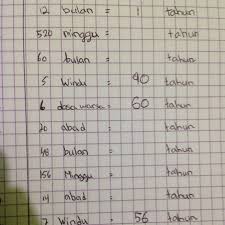 12 bulan = 1 tahun
520 minggu = tahun
60 bulan = tahun
5 Windu = 40 tahun
6 dasa warsa = 60 tahun
20 abad = tahun
48 bulan = tahun
156 Minggu = tahun
14 abad = tahun
7 Windu = 56 tahun